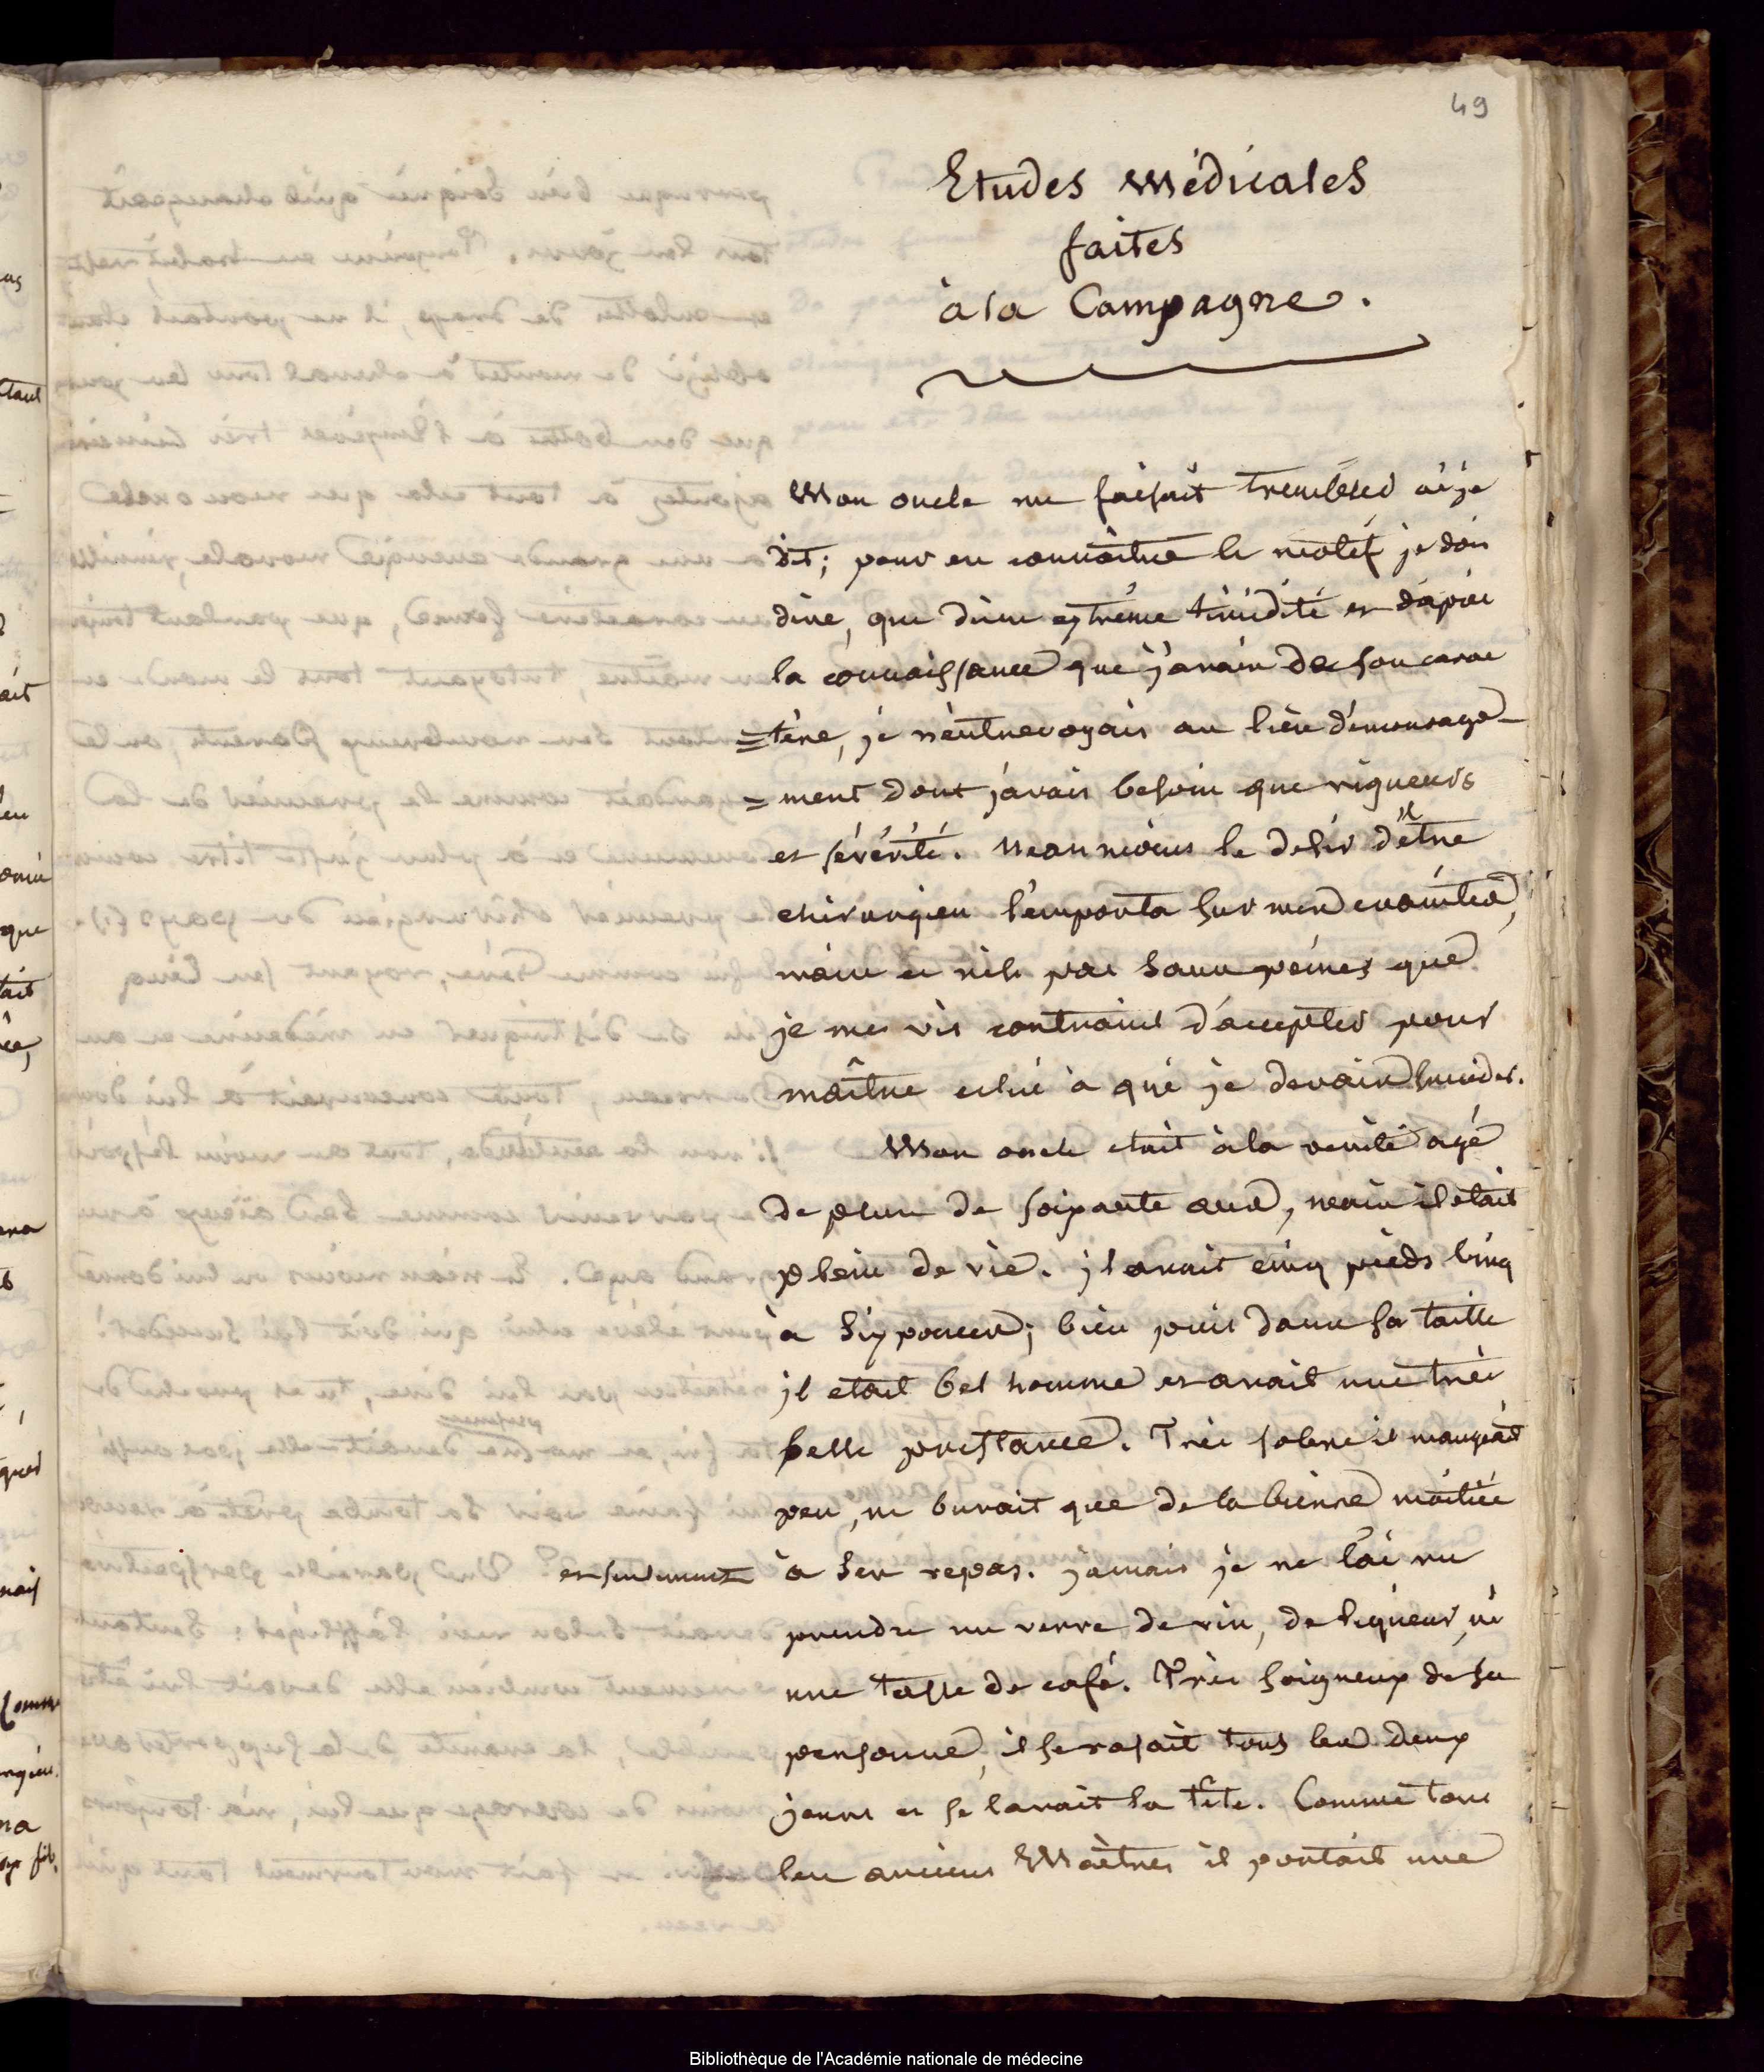 49
Etudes Médicales
faites
à la Campagne.
Mon oncle me faisait trembler ai-je
dit; pour en connaître le motif je dois
dire, que d'une extrême timidité et d'après
la connaissance que j'avais de son carac
=tère, je n'entrevoyais au lieu d'encourage-
=ment dont j'avais besoin que rigueurs
et sévérité. Neanmoins le desir d'être
chirurgien l'emporta sur mes craintes,
mais ce n'est pas sans peines que
je me vis contraint d'accepter pour
maître celui à qui je devais succéder.
Mon oncle etait à la verité agé
de plus de soixante ans, mais il était
plein de vie. il avait cinq pieds cinq
à six pouces; bien pris dans sa taille
il etait bel homme et avait une très
belle prestance. Très sobre il mangeait
peu, ne buvait que de la bierre
et seulement à ses repas. jamais je ne l'ai vu
prendre un verre de vin, de liqueur, ni
une tasse de café. Très soigneux de sa
personne, il se rasait tous les deux
jours et se lavait la tête. Comme tous
les anciens Maîtres il portait une
Bibliothèque de l'Académie nationale de médecine